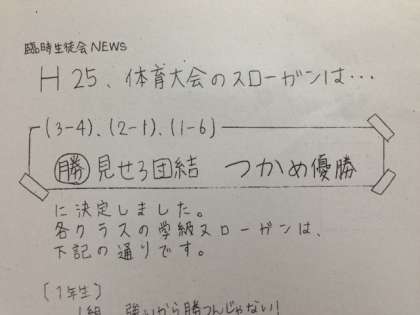 臨時生徒会NEWS
H25、体育大会のスローガンは…
(3-4)、(2-1)、(1-6)
勝 見せろ団結 つかめ優勝
に決定しました。
各クラスの学級スローガンは、
下記の通りです。
(1年生)
1組 強いから勝つんじゃない!